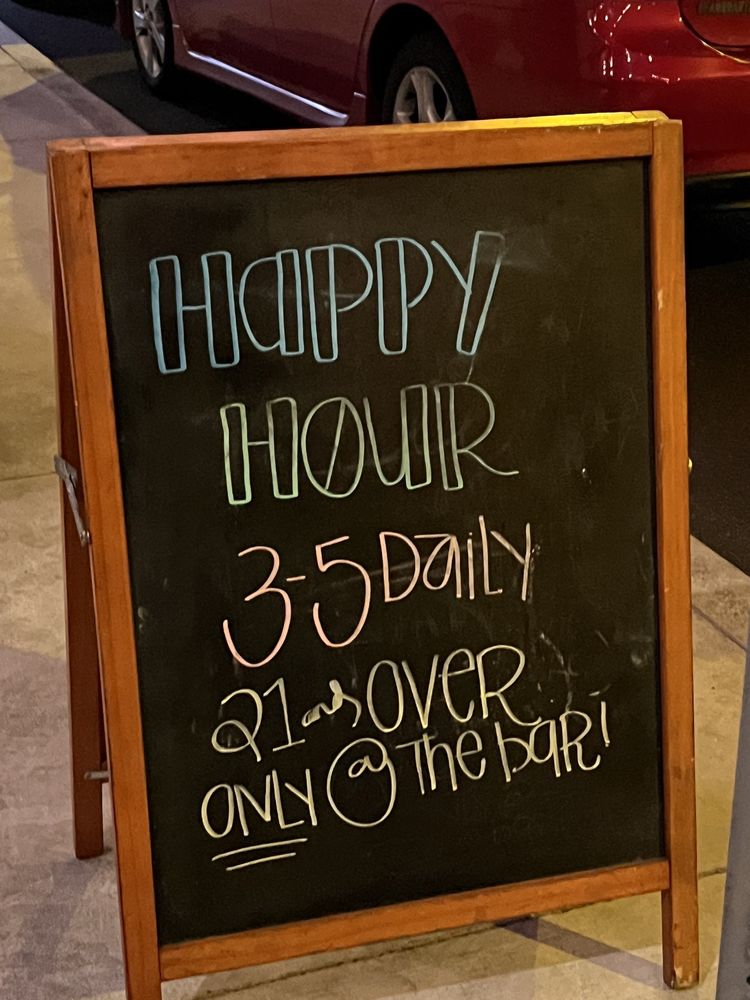 HAPPY
HOUR
3-5 DAILY
21 and OVER
ONLY @ The baR!